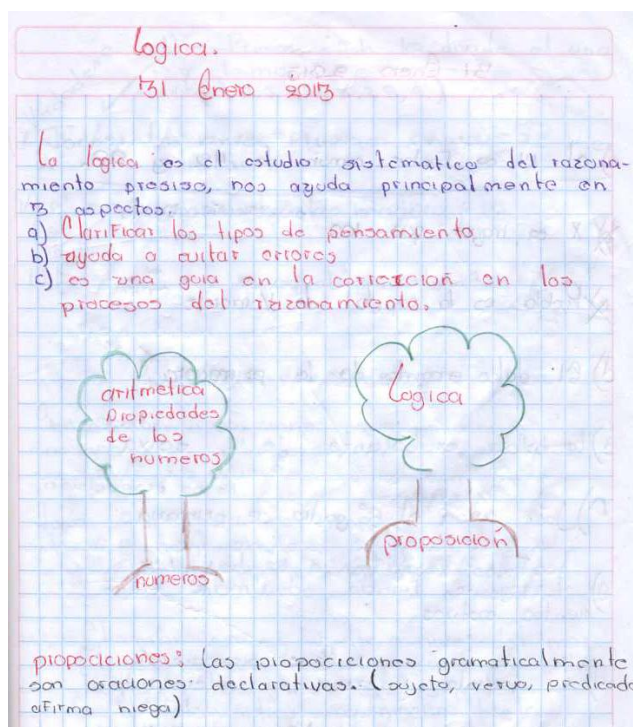 Logica.
31 Enero 2013
La logica es el estudio sistematico del razona-
miento presiso, nos ayuda principalmente en
3 aspectos.
a) Clarificar los tipos de pensamiento
b) ayuda a evitar errores
c) es una guia en la correxcion en los
procesos del razonamiento.
aritmetica
Propiedades
de los
numeros
numeros
Logica
proposicioñ
propociciones: Las propociciones gramaticalmente
son oraciones declarativas. (sujeto, vervo, predicado
afirma niega)